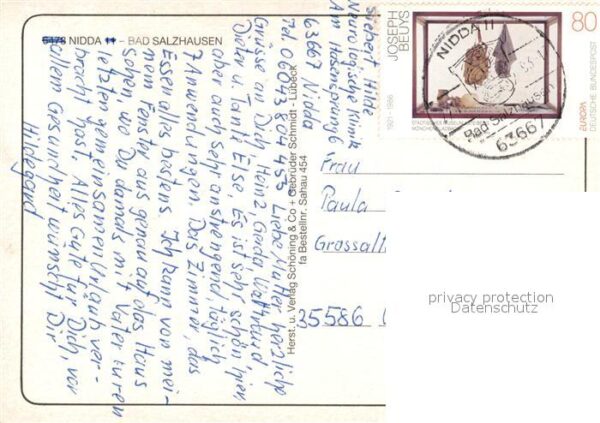 6478 NIDDA 11 - BAD SALZHAUSEN
Siebert Hilde
Neurologische Klinik
Am Hasensprung 6
63667 Nidda
Tel 06043 804 455 Liebe Mutter herzliche
Grüsse an Dich, Heinz, Gerda, Waltraud,
Dieter u. Tante Else. Es ist sehr schön hier,
aber auch sehr anstrengend, täglich
7 Anwendungen. Das Zimmer, das
Essen alles bestens. Ich kann von mei-
nem Fenster aus genau auf das Haus
sehen, wo Du damals mit Vater euren
letzten gemeinsamen Urlaub ver-
bracht hast. Alles Gute für Dich, vor
allem Gesundheit wünscht Dir
Hildegard
Herst. u. Verlag Schöning & Co + Gebrüder Schmidt - Lübeck
fa Bestellnr. Sahau 454
JOSEPH
BEUYS
1921 - 1986
80
DEUTSCHE BUNDESPOST
EUROPA
NIDDA 11
Bad Salzhausen
63667
Frau
Paula
Grossalt
35586
privacy protection
Datenschutz